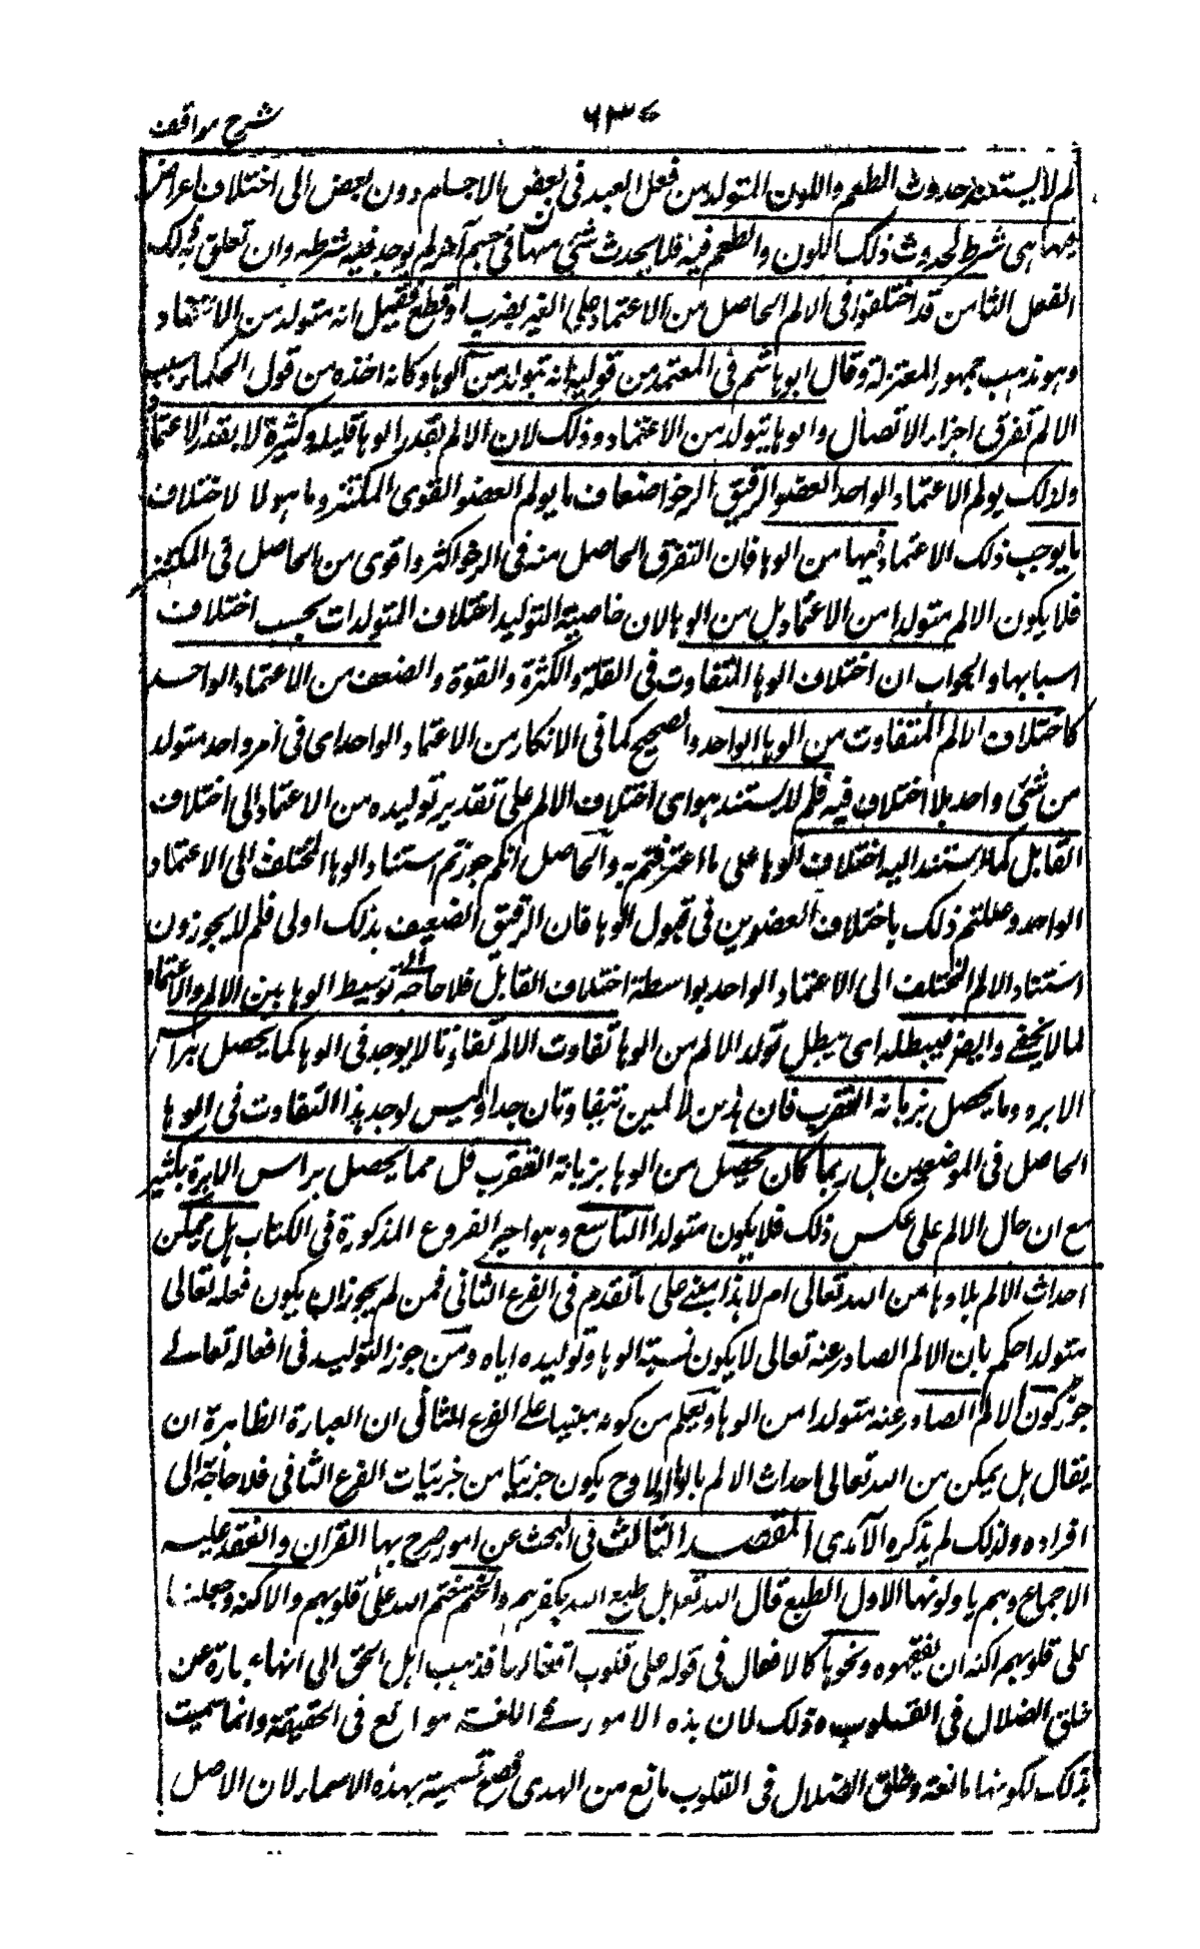 شرح مواقف
٦٣٧
لم لا يستند حدوث الطعم واللون المتولد من فعل العبد في بعض الاجسام دون بعض الى اختلاف اعراض
فيها هي شرط لحدوث ذلك اللون والطعم فيه فلا يحدث شئ منها في جسم آخر لم يوجد فيه شرطه وان تعلق به ذلك
الفعل الثامن قد اختلفوا في الالم الحاصل من الاعتماد على الغير بضرب او قطع فقيل انه متولد من الاعتماد
وهو مذهب جمهور المعتزلة وقال ابو هاشم في المعتمد من قوليه انه يتولد من الوها وكانه اخذه من قول الحكماء سبب
الالم تفرق اجزاء الاتصال والوها يتولد من الاعتماد وذلك لان الالم بقدر الوها قليله وكثيرة لا بقدر الاعتماد
ولذلك يولم الاعتماد الواحد العضو الرقيق الرخو اضعاف ما يولم العضو القوى المكتنز وما هو لا لاختلاف
ما يوجب ذلك الاعتماد فيها من الوها فان التفرق الحاصل منه في الرخو اكثر واقوى من الحاصل في المكتنز
فلا يكون الالم متولدا من الاعتماد بل من الوها لان خاصية التوليد اختلاف المتولدات بحسب اختلاف
اسبابها والجواب ان اختلاف الوها المتفاوت في القلة والكثرة والقوة والضعف من الاعتماد الواحد
كاختلاف الالم المتفاوت من الوها الواحد والصحيح كما في الانكار من الاعتماد الواحد اى في امر واحد متولد
من شئ واحد بلا اختلاف فيه فلم لا يستند هو اى اختلاف الالم على تقدير توليده من الاعتماد الى اختلاف
القابل كما استند اليه اختلاف الوها على ما اعترفتم به والحاصل انكم جوزتم استناد الوها المختلف الى الاعتماد
الواحد وعللتم ذلك باختلاف العضوين في قبول الوها فان الرقيق الضعيف بذلك اولى فلم لا يجوزون
استناد الالم المختلف الى الاعتماد الواحد بواسطة اختلاف القابل فلا حاجة الى توسيط الوها بين الالم والاعتماد
لما لا يخفى وايضا فيبطله اى يبطل تولد الالم من الوها تفاوت الالم تفاوتا لا يوجد في الوها كما يحصل برأس
الابره وما يحصل بزبانه العقرب فان هذين الالمين يتفاوتان جدا وليس يوجد هذا التفاوت في الوها
الحاصل في الموضعين بل ربما كان يحصل من الوها بزبانة العقرب قل مما يحصل براس الابرة بكثير
مع ان حال الالم على عكس ذلك فلا يكون متولدا التاسع وهو اخير الفروع المذكورة في الكتاب هل يمكن
احداث الالم بلا وها من الله تعالى ام لا هذا يبنى على ما تقدم في الفرع الثاني فمن لم يجوز ان يكون فعله تعالى
متولدا حكم بان الالم الصادر عنه تعالى لا يكون نسبة الوها وتوليده اياه ومن جوز التوليد في افعاله تعالى
جوز كون الالم الصادر عنه متولدا من الوها ويعلم من كونه مبنيا على الفرع الثاني ان العبارة الظاهرة ان
يقال هل يمكن من الله تعالى احداث الالم بالوها ام لا وح يكون جزئيا من جزئيات الفرع الثاني فلا حاجة الى
افراده ولذلك لم يذكره الآمدى المقصد الثالث في البحث عن امور صرح بها القران وانعقد عليه
الاجماع وهم ياولونها الاول الطبع قال الله تعالى بل طبع الله بكفرهم والختم ختم الله على قلوبهم والاكنه وجعلنا
على قلوبهم اكنه ان يفقهوه ونحوها كالاقفال في قوله على قلوب اقفالها فذهب اهل الحق الى انها عبارة عن
خلق الضلال في القلوب وذلك لان هذه الامور في اللغة موانع في الحقيقة وانما سميت
بذلك لكونها مانعة وخلق الضلال في القلوب مانع من الهدى فصح تسمية بهذه الاسماء لان الاصل